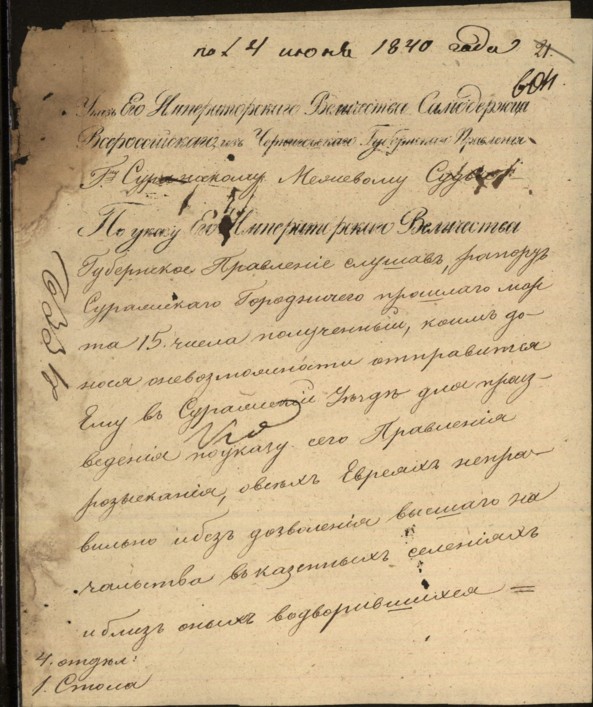 пол. 4 июня 1840 года
21
Указъ Его Императорского Величества Самодержца
Всероссийскаго изъ Черниговскаго Губернскаго Правления
Гну Суражскому Земскому
По указу Его Императорскаго Величества
Губернское Правленіе слушавъ, рапортъ
Суражскаго Городничего прошлаго мар
та 15. числа полученный, коимъ до-
нося оневозможности отправится
Ему въ Суражской Уѣздъ для произ-
ведения поуказу сего Правления
розысканія, овсѣхъ Евреяхъ непра-
вильно ибезъ дозволенія высшаго на
чальства въ казенныхъ селеніяхъ
и близь оныхъ водворившихся =
4. отдѣл:
1. Стола